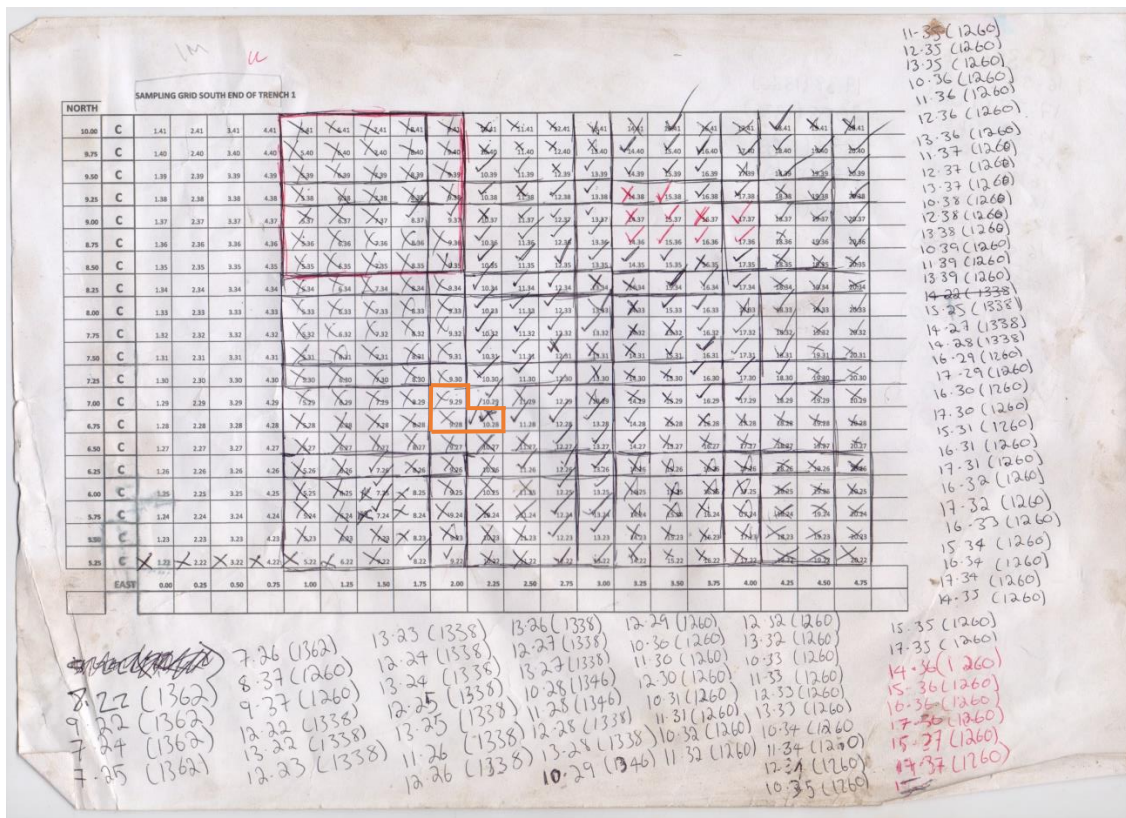 1M
SAMPLING GRID SOUTH END OF TRENCH 1
NORTH
10.00 C 1.41 2.41 3.41 4.41 5.41 6.41 7.41 8.41 9.41 10.41 11.41 12.41 13.41 14.41 15.41 16.41 17.41 18.41 19.41 20.41
9.75 C 1.40 2.40 3.40 4.40 5.40 6.40 7.40 8.40 9.40 10.40 11.40 12.40 13.40 14.40 15.40 16.40 17.40 18.40 19.40 20.40
9.50 C 1.39 2.39 3.39 4.39 5.39 6.39 7.39 8.39 9.39 10.39 11.39 12.39 13.39 14.39 15.39 16.39 17.39 18.39 19.39 20.39
9.25 C 1.38 2.38 3.38 4.38 5.38 6.38 7.38 8.38 9.38 10.38 11.38 12.38 13.38 14.38 15.38 16.38 17.38 18.38 19.38 20.48
9.00 C 1.37 2.37 3.37 4.37 6.37 6.37 7.37 8.37 9.37 10.37 11.37 12.37 13.37 14.37 15.37 16.37 17.37 18.37 19.37 20.37
8.75 C 1.36 2.36 3.36 4.36 5.36 6.36 7.36 8.36 9.36 10.36 11.36 12.36 13.36 14.36 15.36 16.36 17.36 18.36 19.36 20.36
8.50 C 1.35 2.35 3.35 4.35 5.35 6.35 7.35 8.35 9.35 10.35 11.35 12.35 13.35 14.35 15.35 16.35 17.35 18.35 19.35 20.35
8.25 C 1.34 2.34 3.34 4.34 5.34 6.34 7.34 8.34 9.34 10.34 11.34 12.34 13.34 14.34 15.34 16.34 17.34 18.34 19.34 20.34
8.00 C 1.33 2.33 3.33 4.33 5.33 6.33 7.33 8.33 9.33 10.33 11.33 12.33 13.33 14.33 15.33 16.33 17.33 18.33 19.33 20.33
7.75 C 1.32 2.32 3.32 4.32 5.32 6.32 7.32 8.32 9.32 10.32 11.32 12.32 13.32 14.32 15.32 16.32 17.32 18.32 19.32 20.32
7.50 C 1.31 2.31 3.31 4.31 5.31 6.31 7.31 8.31 9.31 10.31 11.31 12.31 13.31 14.31 15.31 16.31 17.31 18.31 19.31 20.31
7.25 C 1.30 2.30 3.30 4.30 5.30 6.30 7.30 8.30 9.30 10.30 11.30 12.30 13.30 14.30 15.30 16.30 17.30 18.30 19.30 20.30
7.00 C 1.29 2.29 3.29 4.29 5.29 6.29 7.29 8.29 9.29 10.29 11.29 12.29 13.29 14.29 15.29 16.29 17.29 18.29 19.29 20.29
6.75 C 1.28 2.28 3.28 4.28 5.28 6.28 7.28 8.28 9.28 10.28 11.28 12.28 13.28 14.28 15.28 16.28 17.28 18.28 19.28 20.28
6.50 C 1.27 2.27 3.27 4.27 5.27 6.27 7.27 8.27 9.27 10.27 11.27 12.27 13.27 14.27 15.27 16.27 17.27 18.27 19.27 20.27
6.25 C 1.26 2.26 3.26 4.26 5.26 6.26 7.26 8.26 9.26 10.26 11.26 12.26 13.26 14.26 15.26 16.26 17.26 18.26 19.26 20.26
6.00 C 1.25 2.25 3.25 4.25 5.25 6.25 7.25 8.25 9.25 10.25 11.25 12.25 13.25 14.25 15.25 16.25 17.25 18.25 19.25 20.25
5.75 C 1.24 2.24 3.24 4.24 5.24 6.24 7.24 8.24 9.24 10.24 11.24 12.24 13.24 14.24 15.24 16.24 17.24 18.24 19.24 20.24
5.50 C 1.23 2.23 3.23 4.23 5.23 6.23 7.23 8.23 9.23 10.23 11.23 12.23 13.23 14.23 15.23 16.23 17.23 18.23 19.23 20.23
5.25 C 1.22 2.22 3.22 4.22 5.22 6.22 7.22 8.22 9.22 10.22 11.22 12.22 13.22 14.22 15.22 16.22 17.22 18.22 19.22 20.22
EAST 0.00 0.25 0.50 0.75 1.00 1.25 1.50 1.75 2.00 2.25 2.50 2.75 3.00 3.25 3.50 3.75 4.00 4.25 4.50 4.75
11.35 (1260)
12.35 (1260)
13.35 (1260)
10.36 (1260)
11.36 (1260)
12.36 (1260)
13.36 (1260)
11.37 (1260)
12.37 (1260)
13.37 (1260)
10.38 (1260)
12.38 (1260)
13.38 (1260)
10.39 (1260)
11.39 (1260)
13.39 (1260)
14.22 (1338)
15.25 (1338)
14.27 (1338)
14.28 (1338)
16.29 (1260)
17.29 (1260)
16.30 (1260)
17.30 (1260)
15.31 (1260)
16.31 (1260)
17.31 (1260)
16.32 (1260)
17.32 (1260)
16.33 (1260)
15.34 (1260)
16.34 (1260)
17.34 (1260)
14.35 (1260)
15.35 (1260)
17.35 (1260)
14.36 (1260)
15.36 (1260)
16.36 (1260)
17.36 (1260)
15.37 (1260)
17.37 (1260)
8.22 (1362)
9.22 (1362)
7.24 (1362)
7.25 (1362)
7.26 (1362)
8.37 (1260)
9.37 (1260)
12.22 (1338)
13.22 (1338)
12.23 (1338)
13.23 (1338)
12.24 (1338)
13.24 (1338)
12.25 (1338)
13.25 (1338)
11.26 (1338)
12.26 (1338)
13.26 (1338)
12.27 (1338)
13.27 (1338)
10.28 (1346)
11.28 (1346)
12.28 (1338)
13.28 (1338)
10.29 (1346)
12.29 (1260)
10.30 (1260)
11.30 (1260)
12.30 (1260)
10.31 (1260)
11.31 (1260)
10.32 (1260)
11.32 (1260)
12.32 (1260)
13.32 (1260)
10.33 (1260)
11.33 (1260)
12.33 (1260)
13.33 (1260)
10.34 (1260
11.34 (1260)
12.34 (1260)
10.35 (1260)